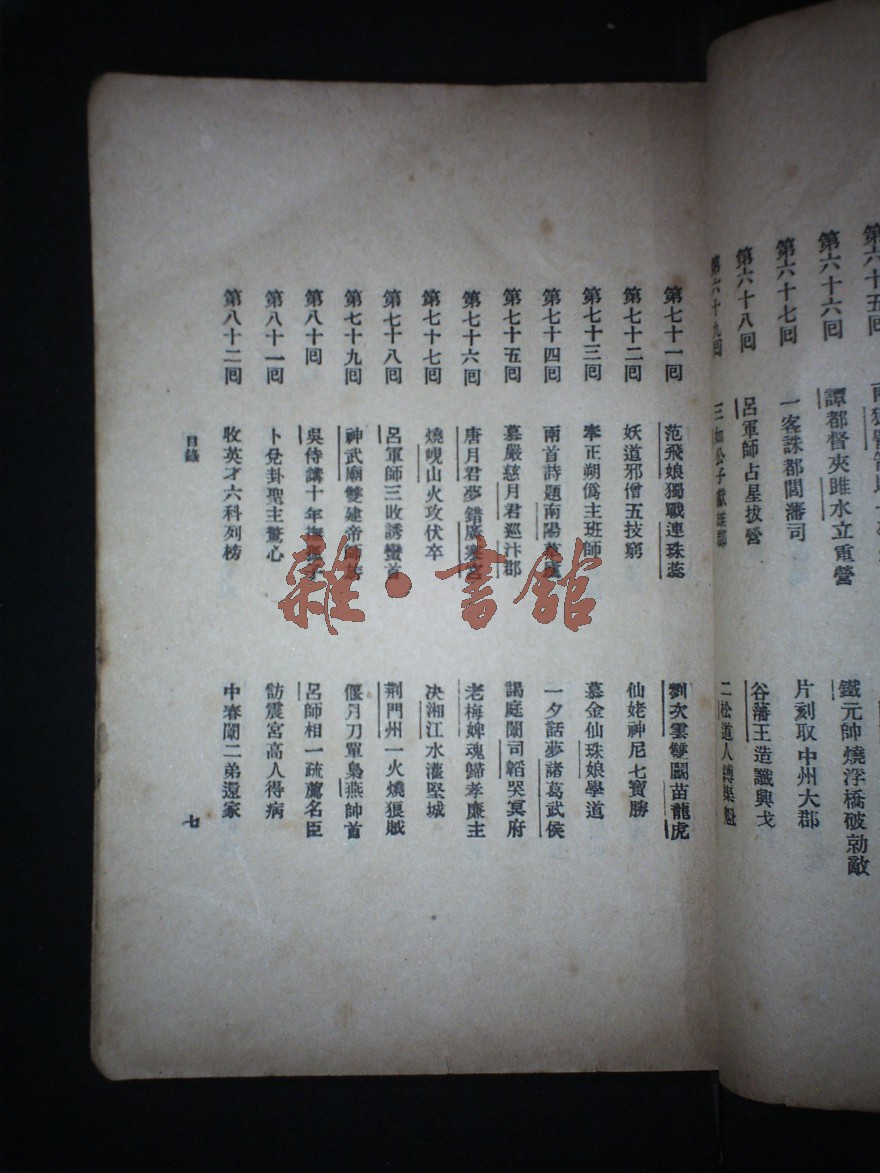 第六十五回
第六十六回 譚都督夾雎水立重營 鐵元帥燒浮橋破勍敵
第六十七回 一客誅都閫藩司 片刻取中州大郡
第六十八回 呂軍師占星拔營 谷藩王造讖興戈
第六十九回 三如公子獻 二松道人
第七十一回 范飛娘獨戰連珠蕊 劉次雲雙鬭苗龍虎
第七十二回 妖道邪僧五技窮 仙姥神尼七寶勝
第七十三回 奉正朔僞主班師 慕金仙珠娘學道
第七十四回 兩首詩題南陽草廬 一夕話夢諸葛武侯
第七十五回 慕嚴慈月君巡汴郡 謁庭闈司韜哭冥府
第七十六回 唐月君夢錯廣寒宮 老梅婢魂歸孝廉主
第七十七回 燒峴山火攻伏卒 决湘江水灌堅城
第七十八回 呂軍師三敗誘蠻酋 荆門州一火燒狼賊
第七十九回 神武廟雙建帝師 偃月刀單梟燕帥首
第八十回 吳侍講十年 子 呂師相一疏薦名臣
第八十一回 卜兌卦聖主驚心 訪震宮高人得病
第八十二回 收英才六科列榜 中春闈二弟還家
目錄
七
雜·書館